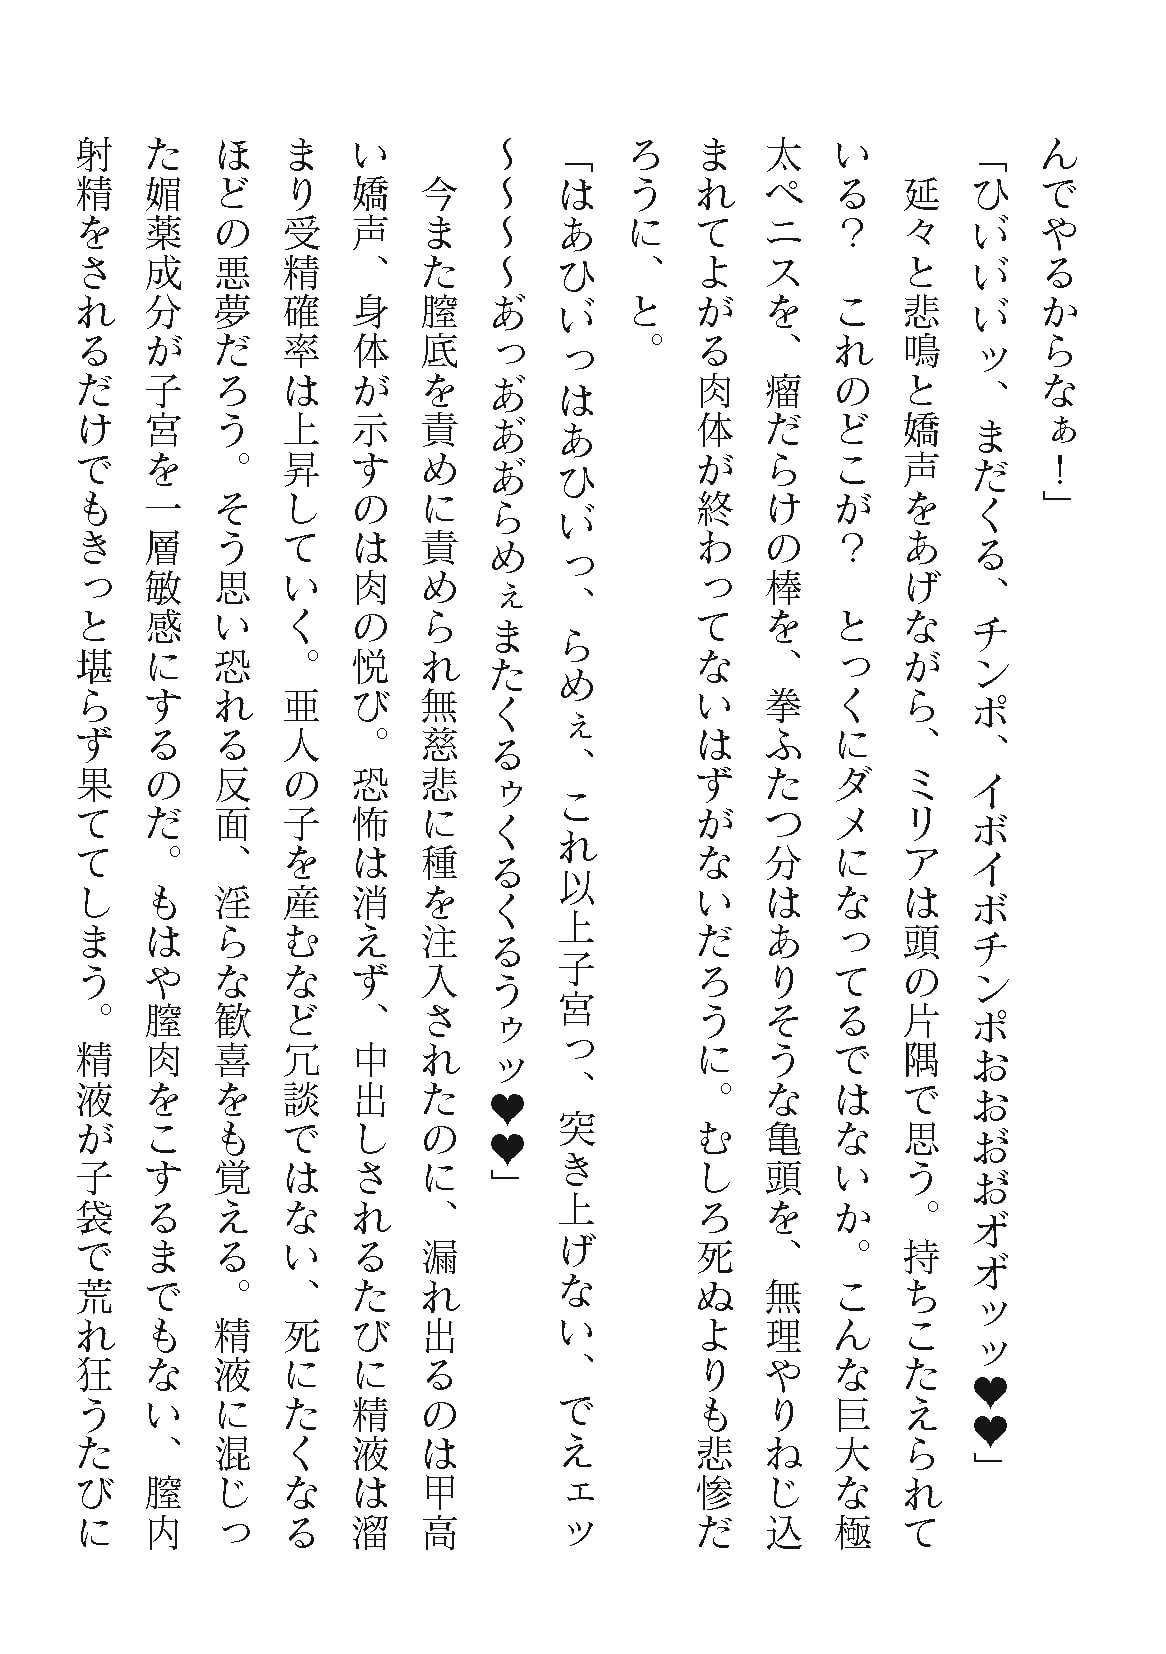 んでやるからなぁ！」
「ひい゛い゛い゛ッ、まだくる、チンポ、イボイボチンポおおお゛お゛オ゛オ゛ッッ♥♥」
　延々と悲鳴と嬌声をあげながら、ミリアは頭の片隅で思う。持ちこたえられて
いる？　これのどこが？　とっくにダメになってるではないか。こんな巨大な極
太ペニスを、瘤だらけの棒を、拳ふたつ分はありそうな亀頭を、無理やりねじ込
まれてよがる肉体が終わってないはずがないだろうに。むしろ死ぬよりも悲惨だ
ろうに、と。
「はあひい゛っはあひい゛っ、らめぇ、これ以上子宮っ、突き上げない、でえェッ
〜〜〜〜あ゛っあ゛あ゛あ゛らめぇまたくるゥくるくるうゥッ♥♥」
　今また膣底を責めに責められ無慈悲に種を注入されたのに、漏れ出るのは甲高
い嬌声、身体が示すのは肉の悦び。恐怖は消えず、中出しされるたびに精液は溜
まり受精確率は上昇していく。亜人の子を産むなど冗談ではない、死にたくなる
ほどの悪夢だろう。そう思い恐れる反面、淫らな歓喜をも覚える。精液に混じっ
た媚薬成分が子宮を一層敏感にするのだ。もはや膣肉をこするまでもない、膣内
射精をされるだけでもきっと堪らず果ててしまう。精液が子袋で荒れ狂うたびに